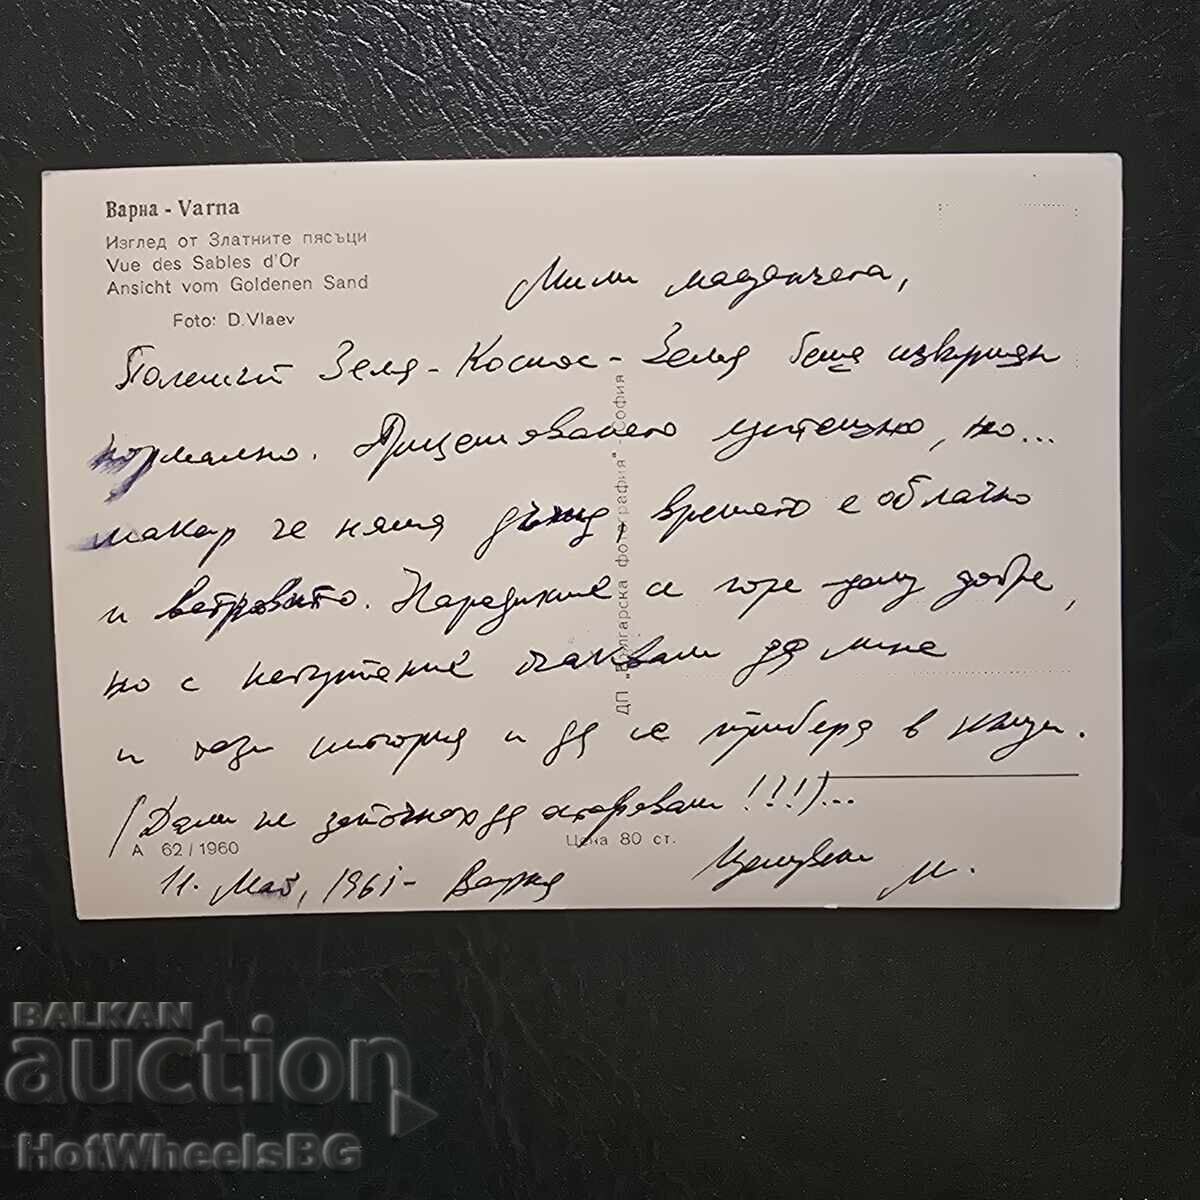 Варна - Varna
Изглед от Златните пясъци
Vue des Sables d'Or
Ansicht vom Goldenen Sand
Foto: D. Vlaev
Мили
Полетът Земя - Космос - Земя беше извършен
нормално. Приземяването успешно, но...
макар че няма дъжд, времето е облачно
и ветровито. Наредихме се горе-долу добре,
но с нетърпение очаквам да мине
и тази история и да се прибера в къщи.
(Дали не започнах да остарявам!!!)...
Целувки
М.
11. Май, 1961 - Варна
А 62/1960
Цена 80 ст.
ДП „Българска фотография" - София
BALKAN
auction
HotWheelsBG